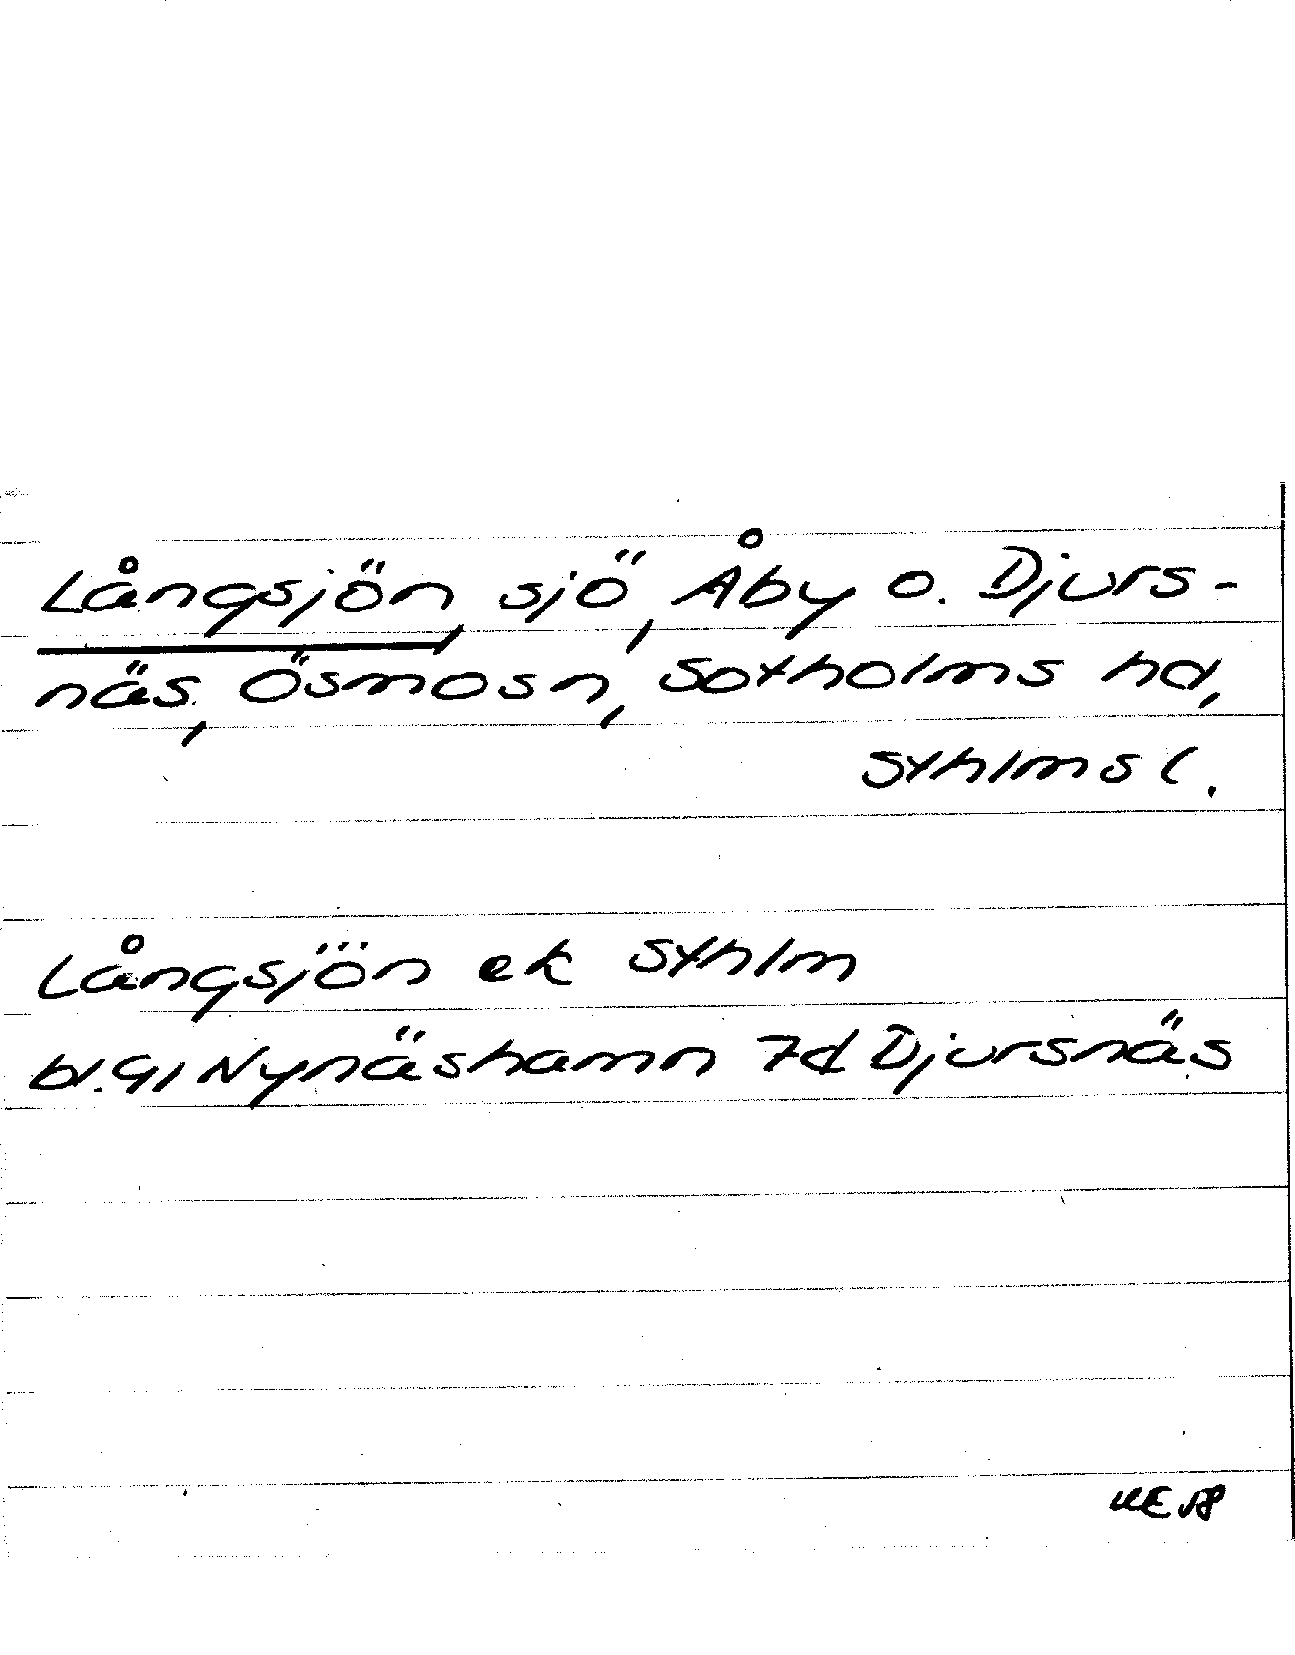 Långsjön, sjö, Åby o. Djurs-
näs, Ösmo sn, Sotholms hd,
Sthlms l.
Långsjön ek Sthlm
bl. 91 Nynäshamn 7d Djursnäs